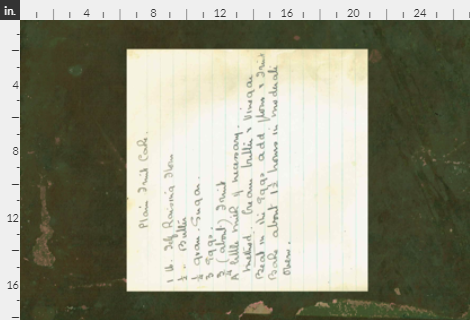 Plain Fruit Cake.
1 lb. Self Raising Flour
½ " Butter
½ gran. Sugar.
3 Eggs.
¾ (about) Fruit
A little milk if necessary.
Method. Cream butter & sugar
Beat in the Eggs add flour & Fruit
Bake about 1½ hours in moderate
Oven.
in.
4
8
12
16
20
24
4
8
12
16